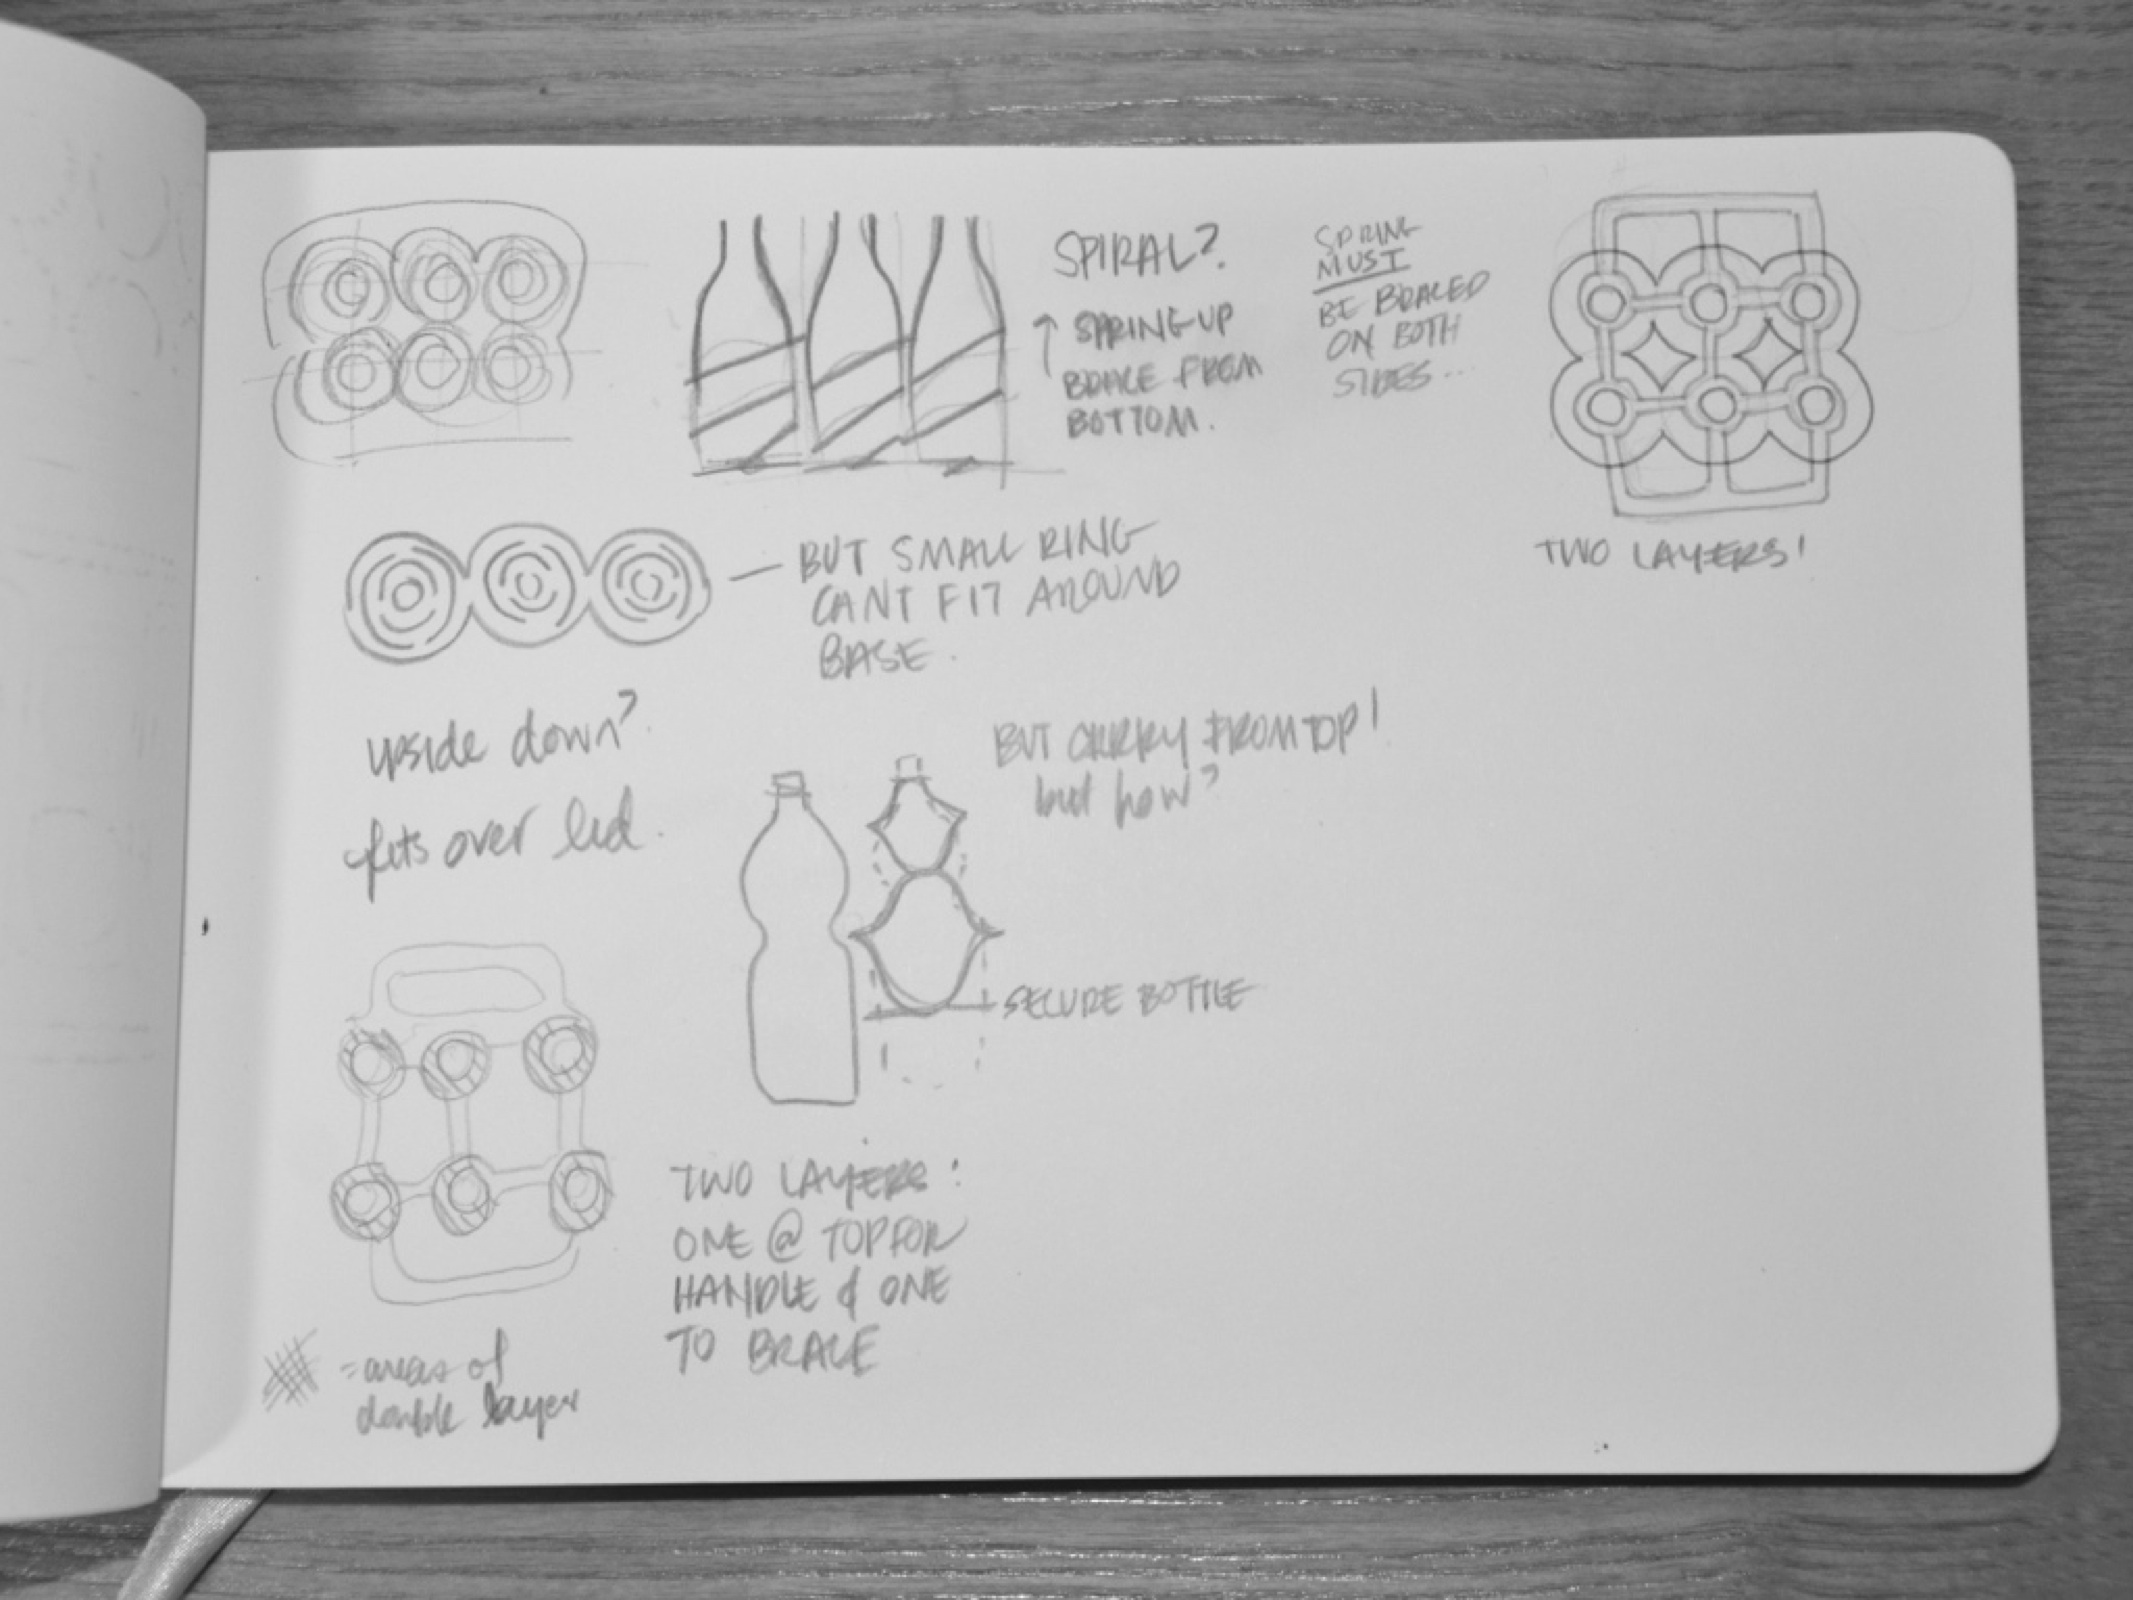 SPIRAL?
SPRING UP
BRACE FROM
BOTTOM.
SPRING
MUST
BE BRACED
ON BOTH
SIDES...
TWO LAYERS!
BUT SMALL RING
CANT FIT AROUND
BASE.
upside down?
fits over lid.
BUT CARRY FROM TOP!
but how?
SECURE BOTTLE
TWO LAYERS:
ONE @ TOP FOR
HANDLE & ONE
TO BRACE
= areas of
double layer